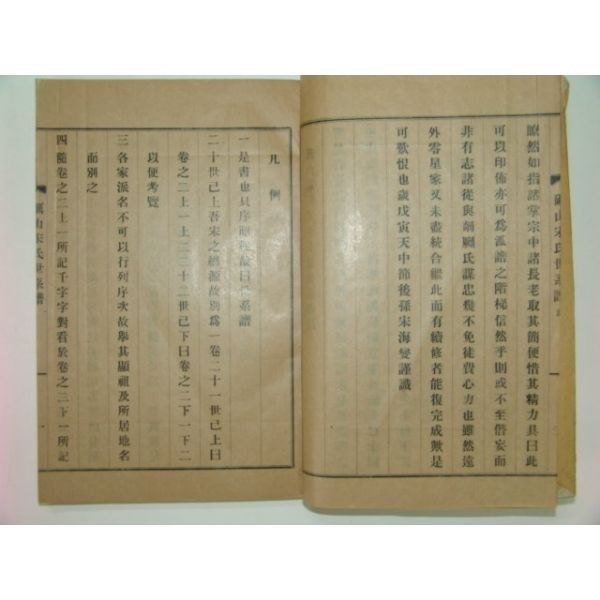 礪山宋氏世系譜
瞭然如指諸掌宗中諸長老取其簡便惜其精力具曰此
可以印佈亦可爲派譜之階梯信然乎則或不至僭妄而
非有志諸從與剞劂氏謀忠幾不免徒費心力也雖然遠
外零星家又未盡統合繼此而有續修者能復完成歟是
可歎恨也歲戊寅天中節後孫宋海燮謹識
凡例
一是書也具序昭穆故曰世系譜
二十世已上吾宋之總源故別爲一卷二十一世已上曰
卷之二上一上二三十二世已下曰卷之二下一下二
以便考覽
三各家派名不可以行列序次故擧其顯祖及所居地名
而別之
四隨卷之二上一所記千字字對看於卷之二下一所記
礪山宋氏世系譜
一